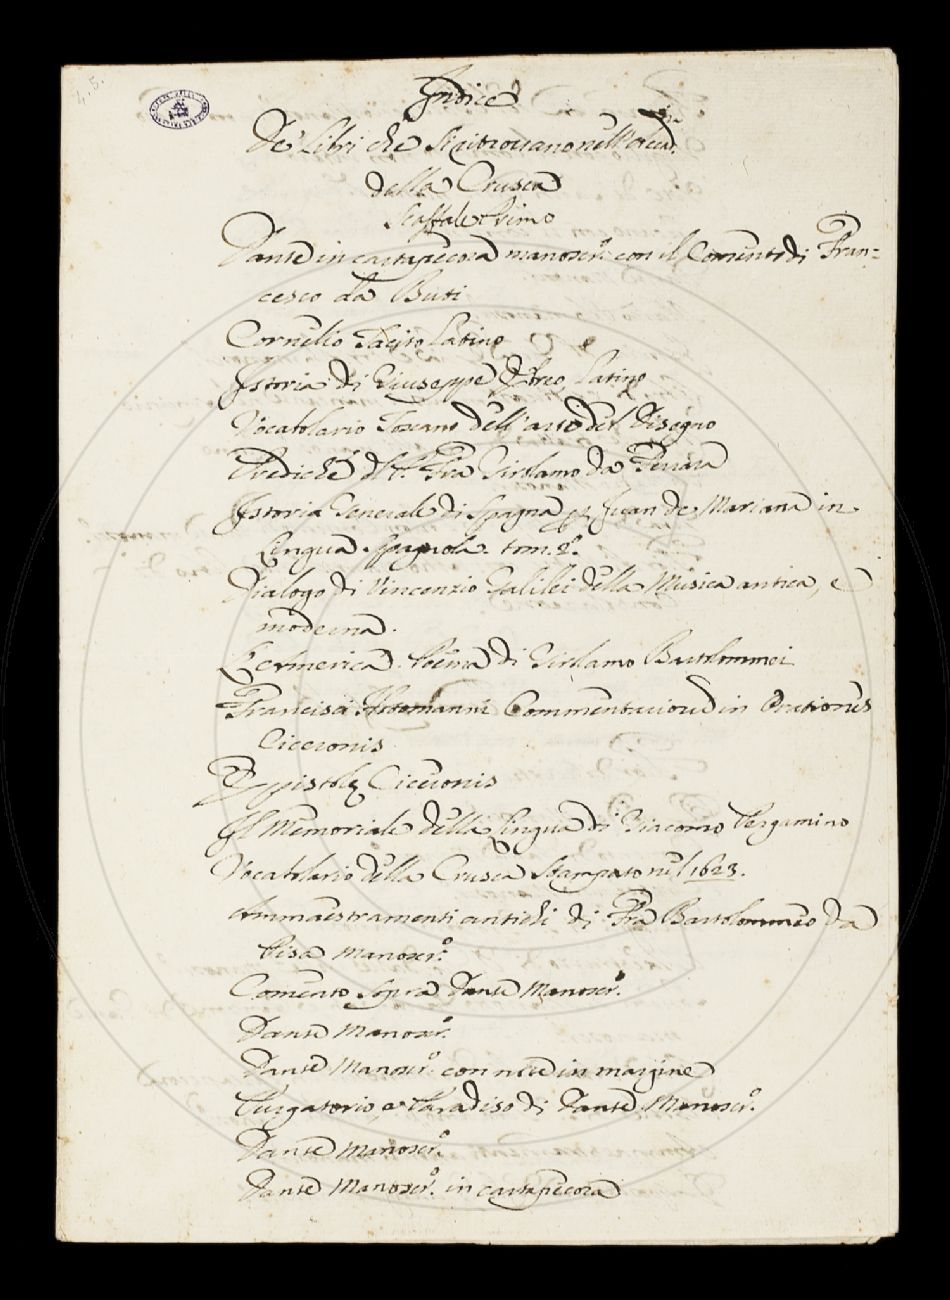 4. 5.
Indice
De' Libri che si ritrovano nell'Accad.
della Crusca
Scaffale Primo
Dante in cartapecora manoscr.o con il Comento di Fran=
cesco da Buti
Cornelio Tacito Latino
Istoria di Giuseppe Ebreo Latino
Vocabolario Toscano dell'arte del Disegno
Prediche del P. Fra Girolamo da Ferrara
Istoria Generale di Spagna Juan de Mariana in
Lengua Spagnola. tom. 2.
Dialogo di Vincenzio Galilei della Musica antica, e
moderna.
L'America Poema di Girolamo Bartolommei
Francisci Hotomanni Commentariorum in Orationes
Ciceronis
Eppistolę Ciceronis
Il Memoriale della Lingua di Giacomo Pergamino
Vocabolario della Crusca Stampato nel 1623.
Ammaestramenti antichi di Fra Bartolommeo da
Pisa Manoscr.o
Comento sopra Dante Manoscr.o
Dante Manoscr.o
Dante Manoscr.o con note in margine
Purgatorio, e Paradiso di Dante Manoscr.o
Dante Manoscr.o
Dante Manoscr.o in cartapecora